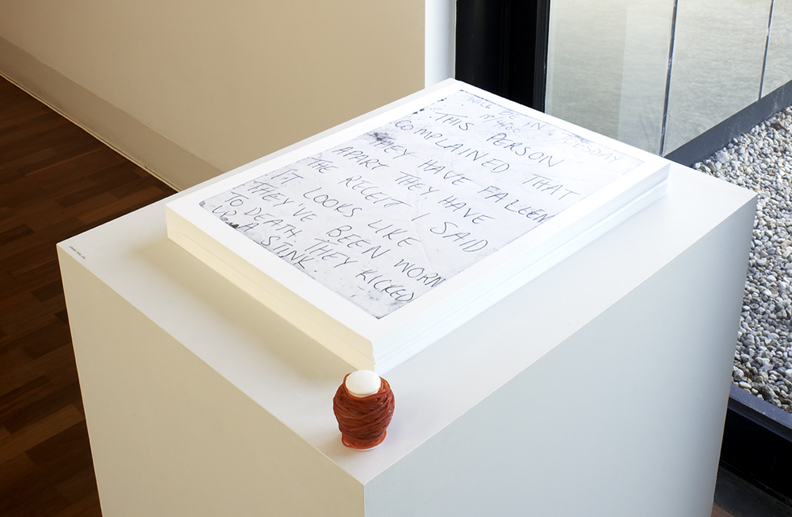 WILL BE IN TUESDAY
THIS PERSON
COMPLAINED THAT
THEY HAVE FALLEN
APART THEY HAVE
THE RECEIT I SAID
IT LOOKS LIKE
THEY'VE BEEN WORN
TO DEATH THEY KICKED
UP A STINK.